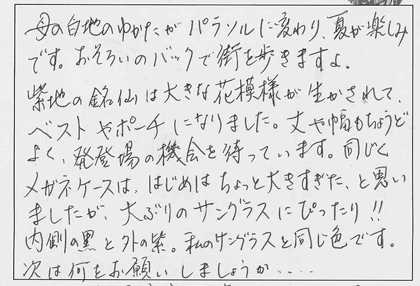 母の白地のゆかたがパラソルに変わり、夏が楽しみ
です。おそろいのバックで街を歩きますよ。
紫地の銘仙は大きな花模様が生かされて、
ベストやポーチになりました。丈や幅もちょうど
よく、発登場の機会を待っています。同じく
メガネケースは、はじめはちょっと大きすぎた、と思い
ましたが、大ぶりのサングラスにぴったり!!
内側の黒と外の紫。私のサングラスと同じ色です。
次は何をお願いしましょうか.....